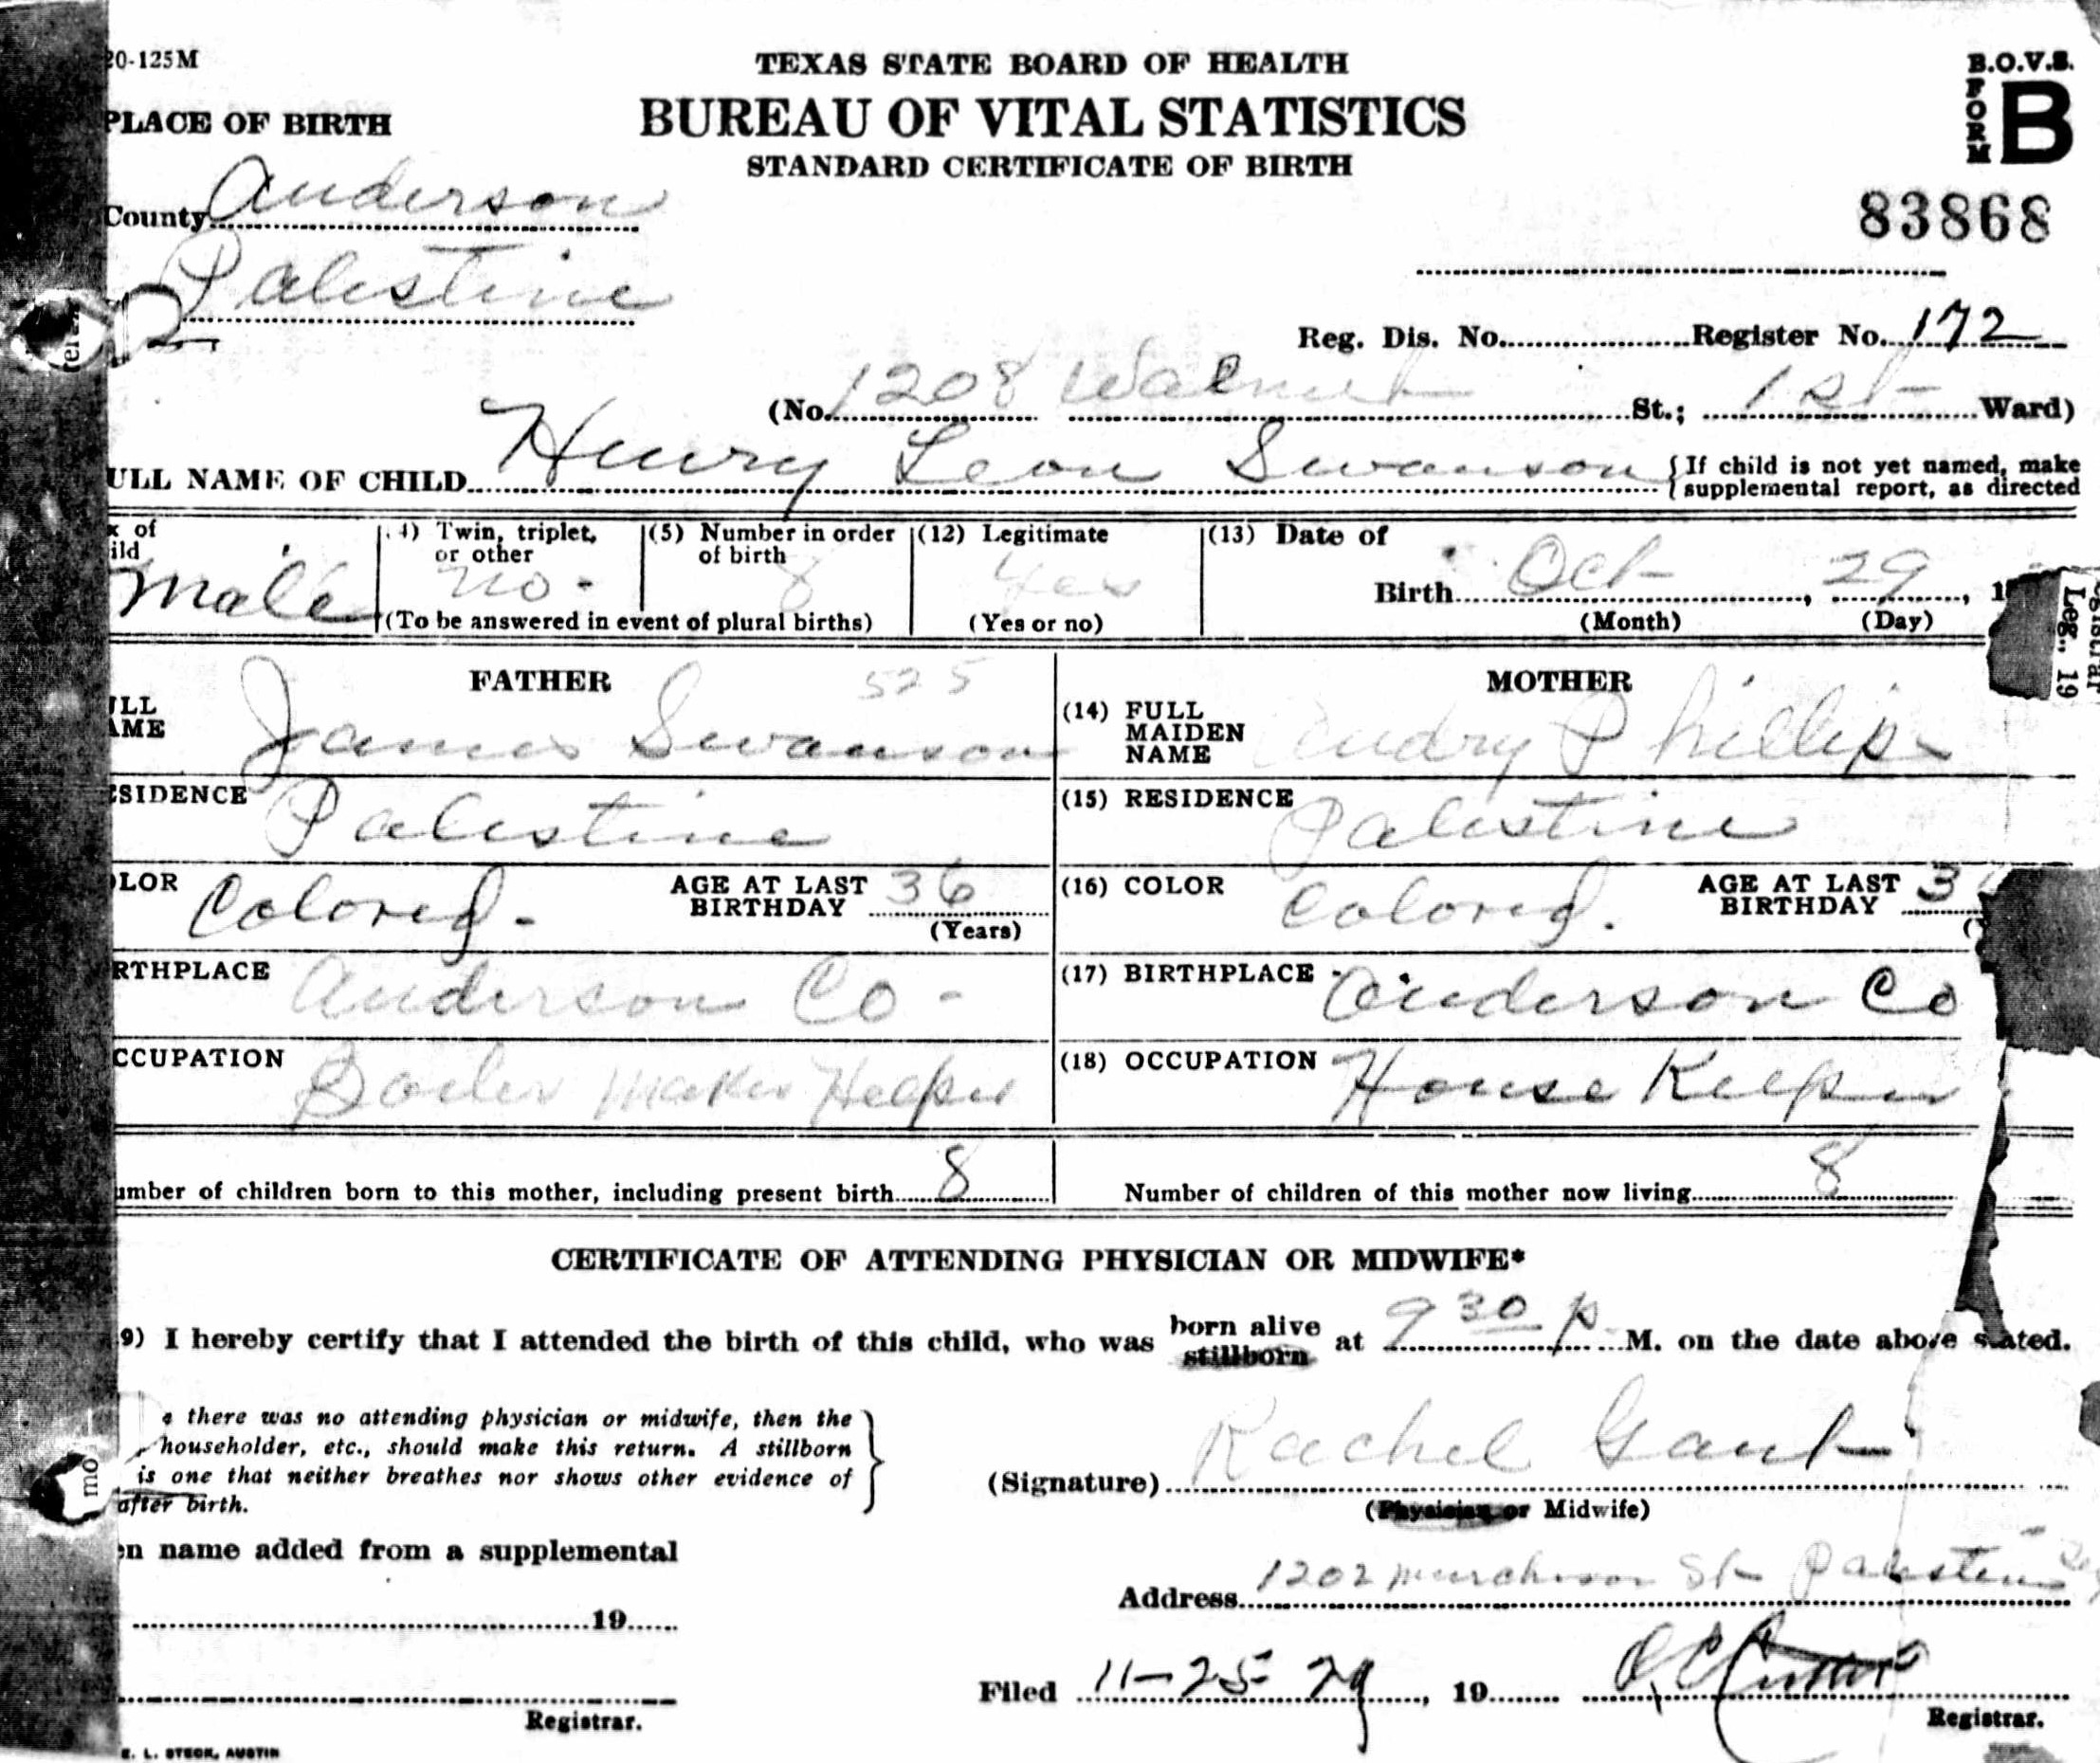 20-125M
TEXAS STATE BOARD OF HEALTH
B.O.V.S.
FORM B
PLACE OF BIRTH
BUREAU OF VITAL STATISTICS
STANDARD CERTIFICATE OF BIRTH
County Anderson
83868
Palestine
Reg. Dis. No. Register No. 172
(No. 1208 Walnut St.; 1st Ward)
ULL NAME OF CHILD Henry Leon Swanson { If child is not yet named, make
supplemental report, as directed
x of
ild
Male
4) Twin, triplet,
or other
no -
(5) Number in order
of birth
8
(To be answered in event of plural births)
(12) Legitimate
Yes
(Yes or no)
(13) Date of
Birth Oct , 29 , 1
(Month) (Day)
Leg., 19
FATHER 525
ULL
AME James Swanson
MOTHER
(14) FULL
MAIDEN
NAME Audry Phillips
SIDENCE Palestine
(15) RESIDENCE Palestine
LOR Colored - AGE AT LAST
BIRTHDAY 36
(Years)
(16) COLOR Colored. AGE AT LAST
BIRTHDAY 3
RTHPLACE Anderson Co -
(17) BIRTHPLACE Anderson Co
CCUPATION Boiler Maker Helper
(18) OCCUPATION House Keeper
umber of children born to this mother, including present birth 8
Number of children of this mother now living 8
CERTIFICATE OF ATTENDING PHYSICIAN OR MIDWIFE*
9) I hereby certify that I attended the birth of this child, who was born alive stillborn at 9 30 p M. on the date above stated.
there was no attending physician or midwife, then the
householder, etc., should make this return. A stillborn
is one that neither breathes nor shows other evidence of
after birth.
(Signature) Rachel Gant
(Physician or Midwife)
en name added from a supplemental
Address 1202 Murchison St Palestine
19
Filed 11-25-29, 19
Registrar.
Registrar.
E. L. STECK, AUSTIN